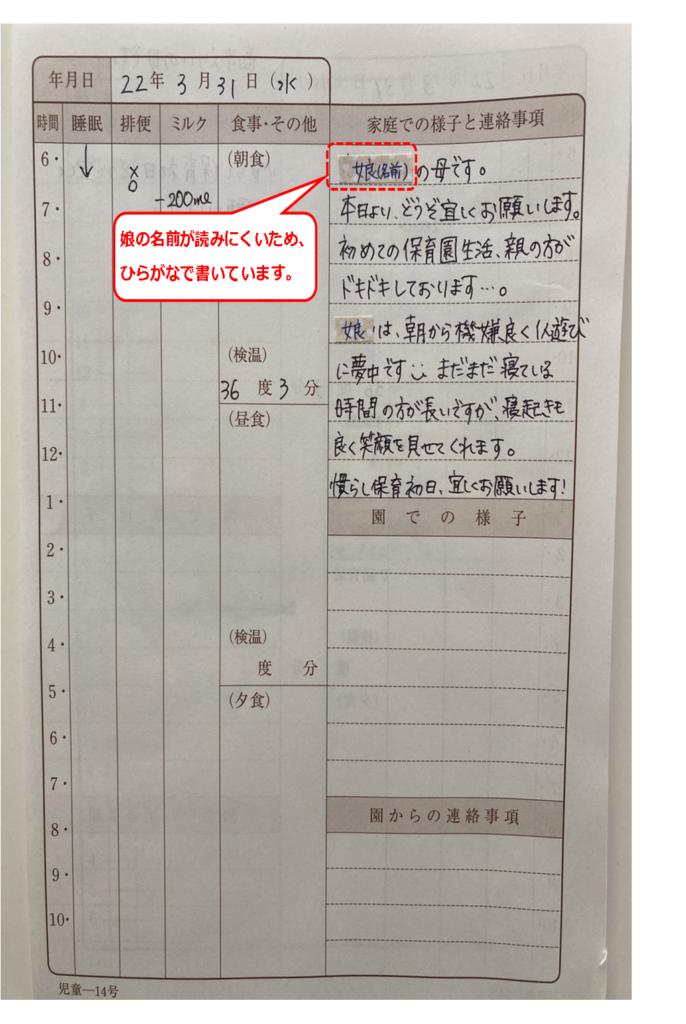 年月日 22年 3月 31日(水)
時間 睡眠 排便 ミルク 食事・その他 家庭での様子と連絡事項
6・ (朝食)
7・ -200ml
8・
9・
10・ (検温)
36度3分
11・ (昼食)
12・
1・
2・
3・
4・ (検温)
度 分
5・ (夕食)
6・
7・
8・
9・
10・
娘の名前が読みにくいため、
ひらがなで書いています。
娘(名前)の母です。
本日より、どうぞ宜しくお願いします。
初めての保育園生活、親の方が
ドキドキしております…。
娘は、朝から機嫌良く1人遊び
に夢中です まだまだ寝ている
時間の方が長いですが、寝起きも
良く笑顔を見せてくれます。
慣らし保育初日、宜しくお願いします!
園での様子
園からの連絡事項
児童―14号